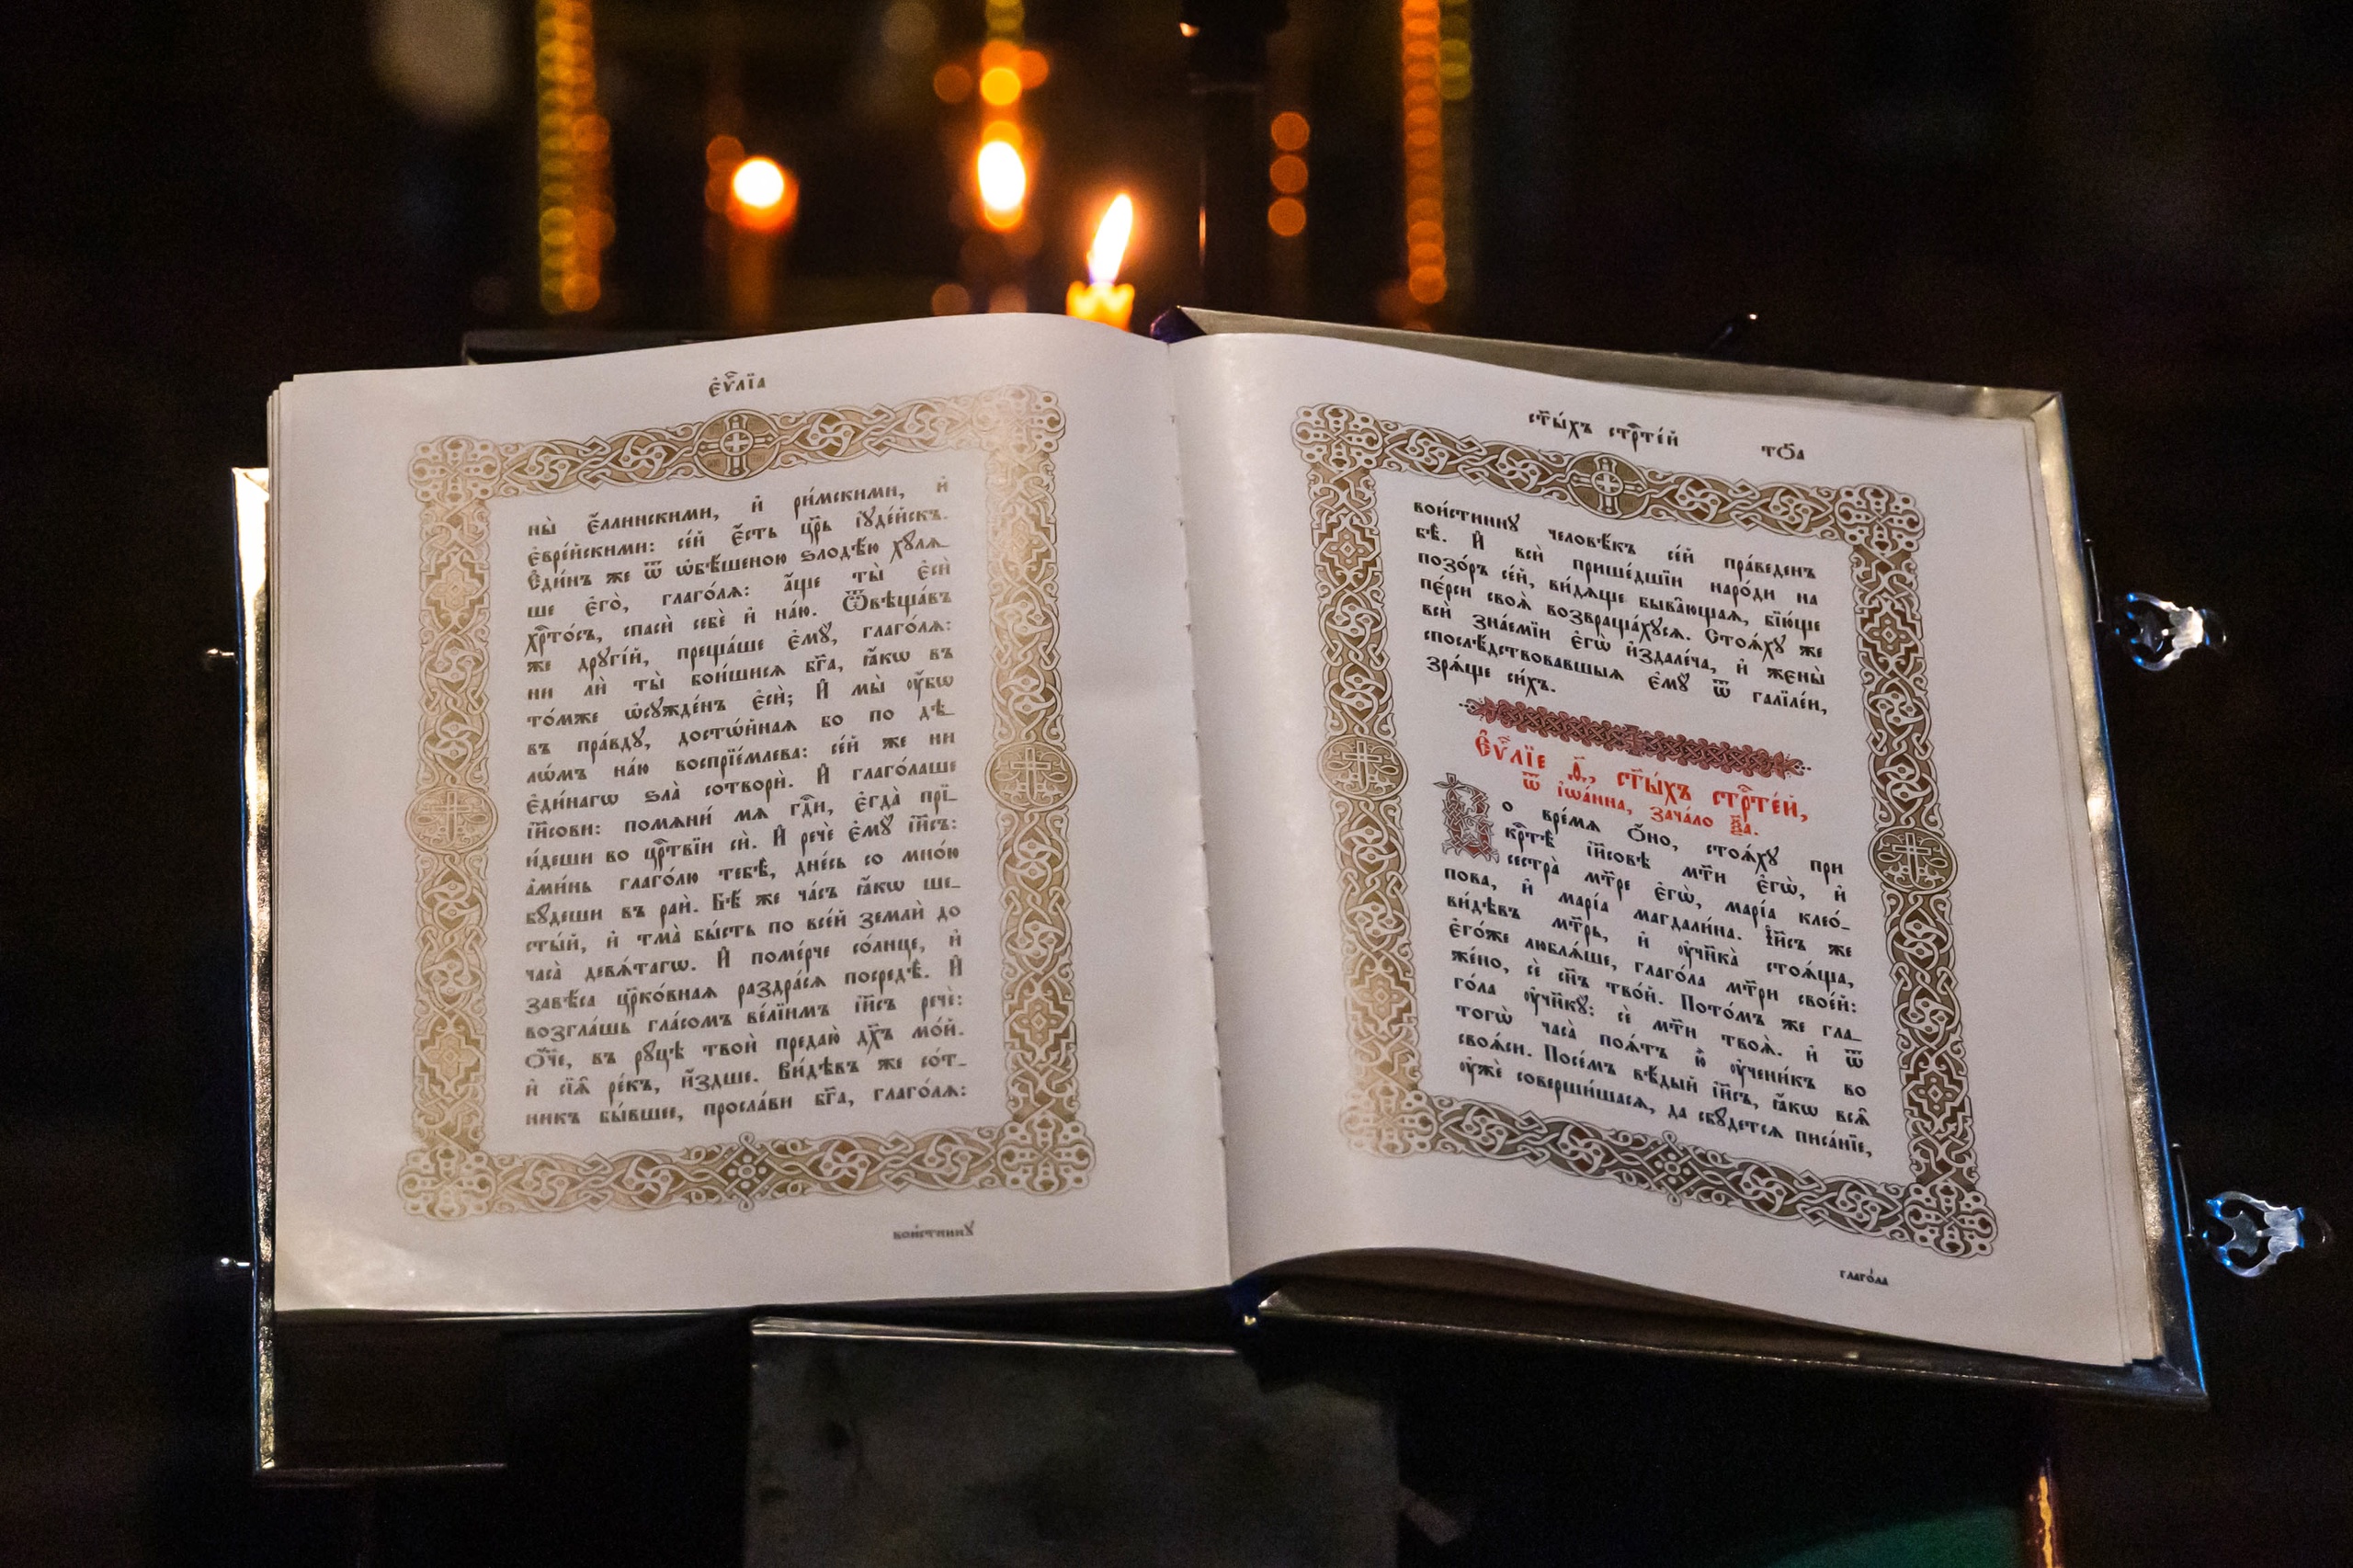 є҆ѵⷢ҇лїа
ны̀ є҆́ллинскими, и҆ ри́мскими, и҆
є҆вре́йскими: се́й є҆́сть цр҃ь і҆ꙋде́йскъ.
Є҆ди́нъ же ѿ ѡ҆бѣ́шеною ѕлодѣ́ю хꙋ́лѧ_
ше є҆го̀, глаго́лѧ: а҆́ще ты̀ є҆сѝ
хрⷭ҇то́съ, спасѝ себѐ и҆ на́ю. Ѿвѣща́въ
же дрꙋгі́й, преща́ше є҆мꙋ̀, глаго́лѧ:
ни лѝ ты̀ бои́шисѧ бг҃а, ꙗ҆́кѡ въ
то́мже ѡ҆сꙋжде́нъ є҆сѝ; И҆ мы̀ ᲂу҆́бѡ
въ пра́вдꙋ, достѡ́йнаѧ бо по дѣ_
лѡ́мъ на́ю воспрїе́млева: се́й же ни
є҆ди́нагѡ ѕла̀ сотворѝ. И҆ глаго́лаше
і҆и҃сови: помѧни́ мѧ гдⷭ҇и, є҆гда̀ прї_
и́деши во црⷭ҇твїи сѝ. И҆ речѐ є҆мꙋ̀ і҆и҃съ:
а҆ми́нь глаго́лю тебѣ̀, дне́сь со мно́ю
бꙋ́деши въ раѝ. Бѣ́ же ча́съ ꙗ҆́кѡ ше_
сты́й, и҆ тма̀ бы́сть по все́й землѝ до
часа̀ девѧ́тагѡ. И҆ поме́рче со́лнце, и҆
завѣ́са цр҃ко́внаѧ раздра́сѧ посредѣ̀. И҆
возгла́шь гла́сомъ ве́лїимъ і҆и҃съ речѐ:
Ѻ҆́ч҃е, въ рꙋ́цѣ твоѝ предаю̀ дх҃ъ мо́й.
и҆ сїѧ̑ ре́къ, и҆́здше. Ви́дѣвъ же со́т_
никъ бы́вшее, просла́ви бг҃а, глаго́лѧ:
вои́стиннꙋ
ст҃ы́хъ стрⷭ҇те́й то҃а
вои́стиннꙋ человѣ́къ се́й пра́веденъ
бѣ̀. И҆ всѝ прише́дшїи наро́ди на
позо́ръ се́й, ви́дѧще быва̑ющаѧ, бїю́ще
пе́рси своѧ̑ возвраща́хꙋсѧ. Стоѧ́хꙋ же
всѝ зна́емїи є҆гѡ̀ и҆здале́ча, и҆ жєны̀
спослѣ́дствовавшыѧ є҆мꙋ̀ ѿ галїле́и,
зрѧ́ще си́хъ.
Є҆ѵⷢ҇лїе д҃, ст҃ы́хъ стрⷭ҇те́й,
ѿ і҆ѡа́нна, зача́ло ѯ҃а.
Во вре́мѧ ѻ҆́но, стоѧ́хꙋ при
крⷭ҇тѣ̀ і҆и҃совѣ мт҃и є҆гѡ̀, и҆
сестра̀ мт҃ре є҆гѡ̀, марі́а клео́_
пова, и҆ марі́а магдали́на. І҆и҃съ же
ви́дѣвъ мт҃рь, и҆ ᲂу҆чн҃ка̀ стоѧ́ща,
є҆го́же люблѧ́ше, глаго́ла мт҃ри свое́й:
же́но, сѐ сн҃ъ тво́й. Пото́мъ же гла_
го́ла ᲂу҆чн҃кꙋ̀: сѐ мт҃и твоѧ̀. и҆ ѿ
тогѡ̀ часа̀ поѧ́тъ ю҆̀ ᲂу҆чени́къ во
своѧ́си. Посе́мъ вѣ́дый і҆и҃съ, ꙗ҆́кѡ всѧ̑
ᲂу҆жѐ соверши́шасѧ, да сбꙋ́детсѧ писа́нїе,
глаго́ла